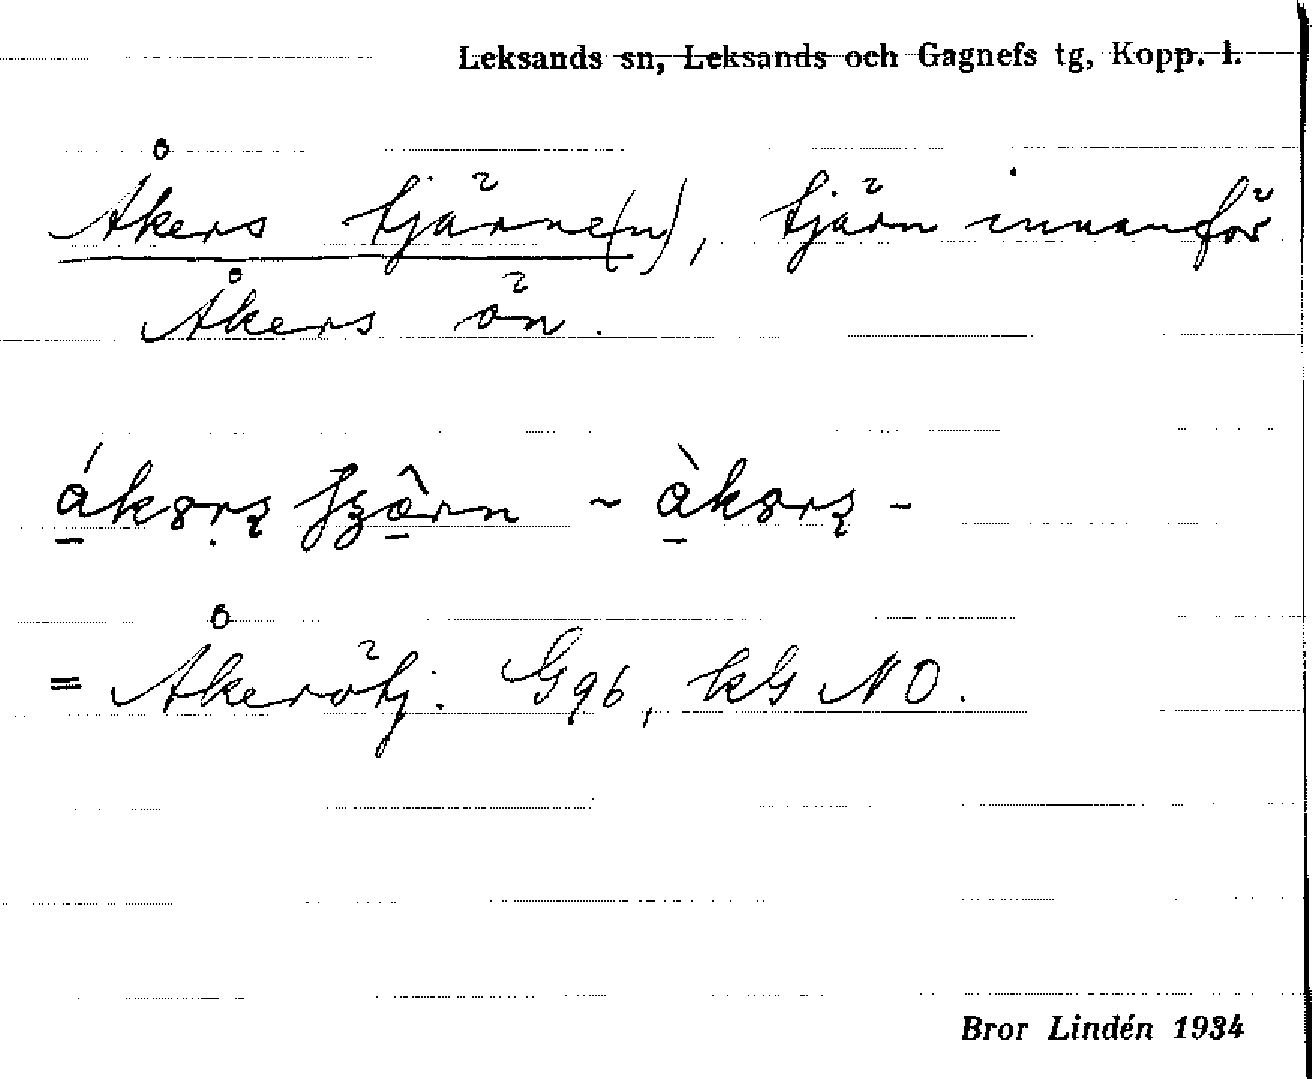 Leksands sn, Leksands och Gagnefs tg, Kopp. l.
Åkers tjärne(n), tjärn innanför
Åkers ön.
= Åkerötj. G96, kG NO.
Bror Lindén 1934